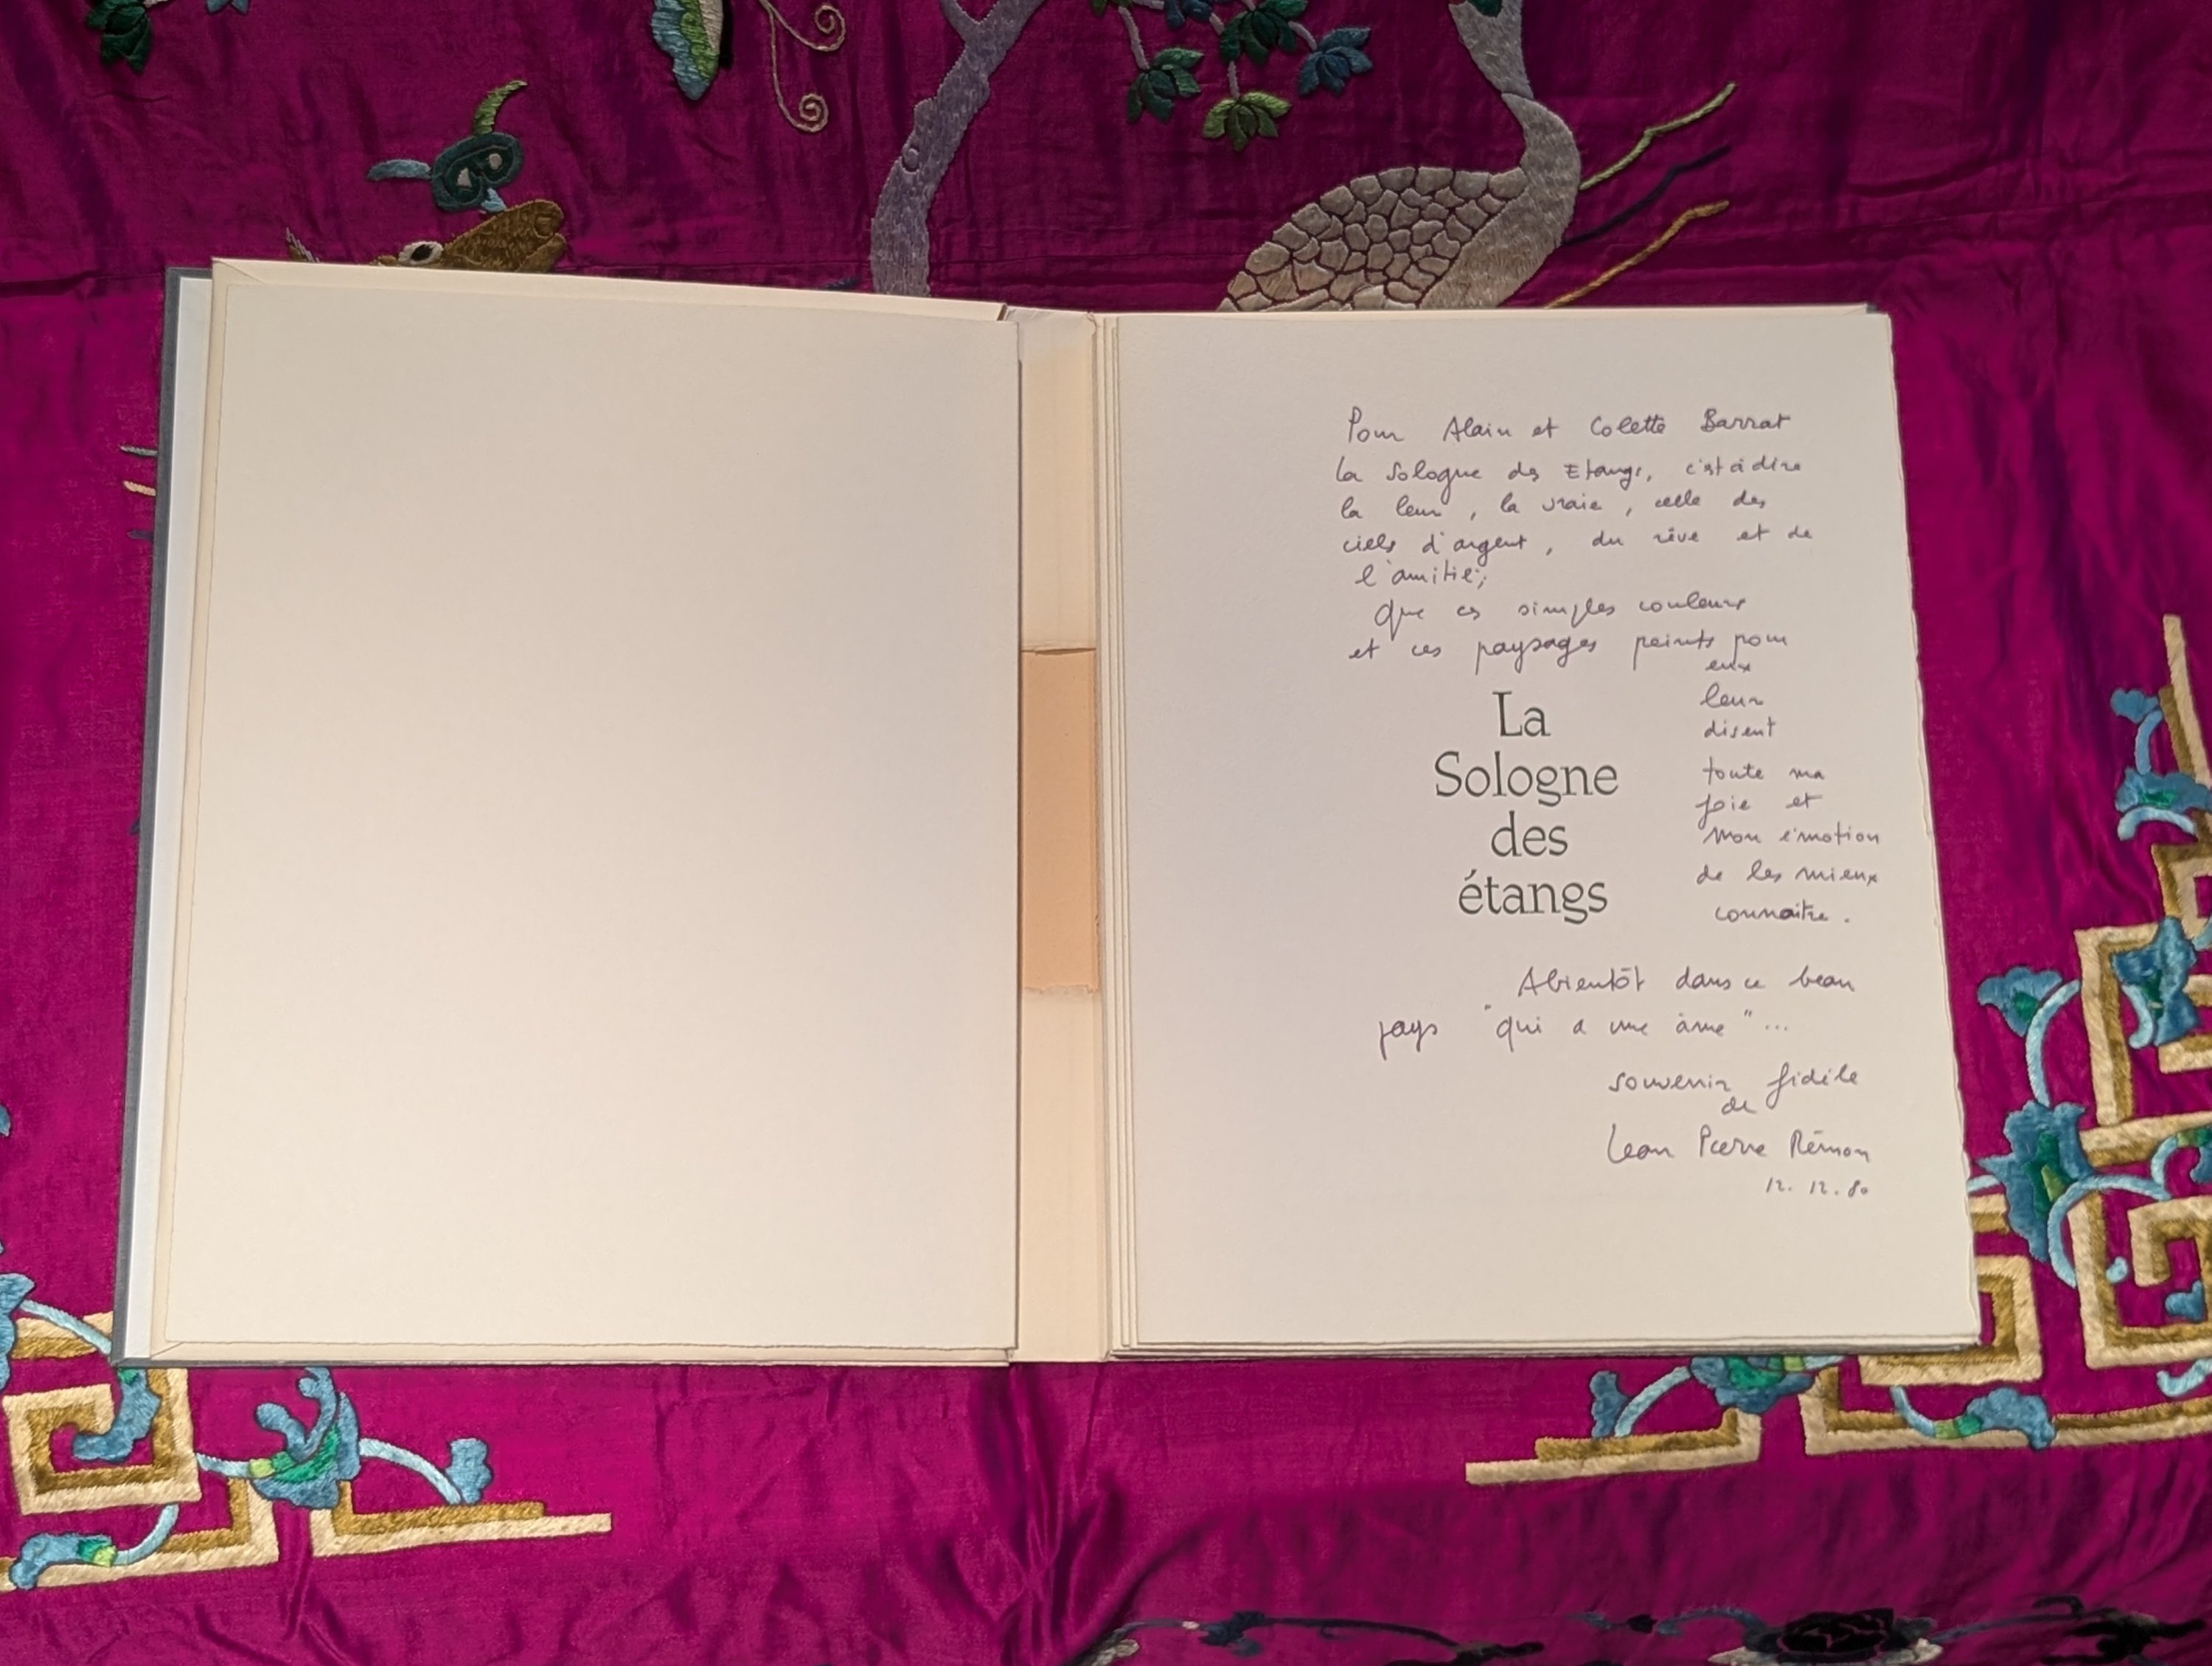 Pour Alain et Colette Barrat
la Sologne des Etangs, c'est à dire
la leur, la vraie, celle des
ciels d'argent, du rêve et de
l'amitié;
Que ces simples couleurs
et ces paysages peints pour
eux
leur
disent
toute ma
joie et
mon émotion
de les mieux
connaitre.
La
Sologne
des
étangs
Abientôt dans ce beau
pays "qui a une âme"...
souvenir fidèle
de
Jean Pierre Rémon
12.12.80